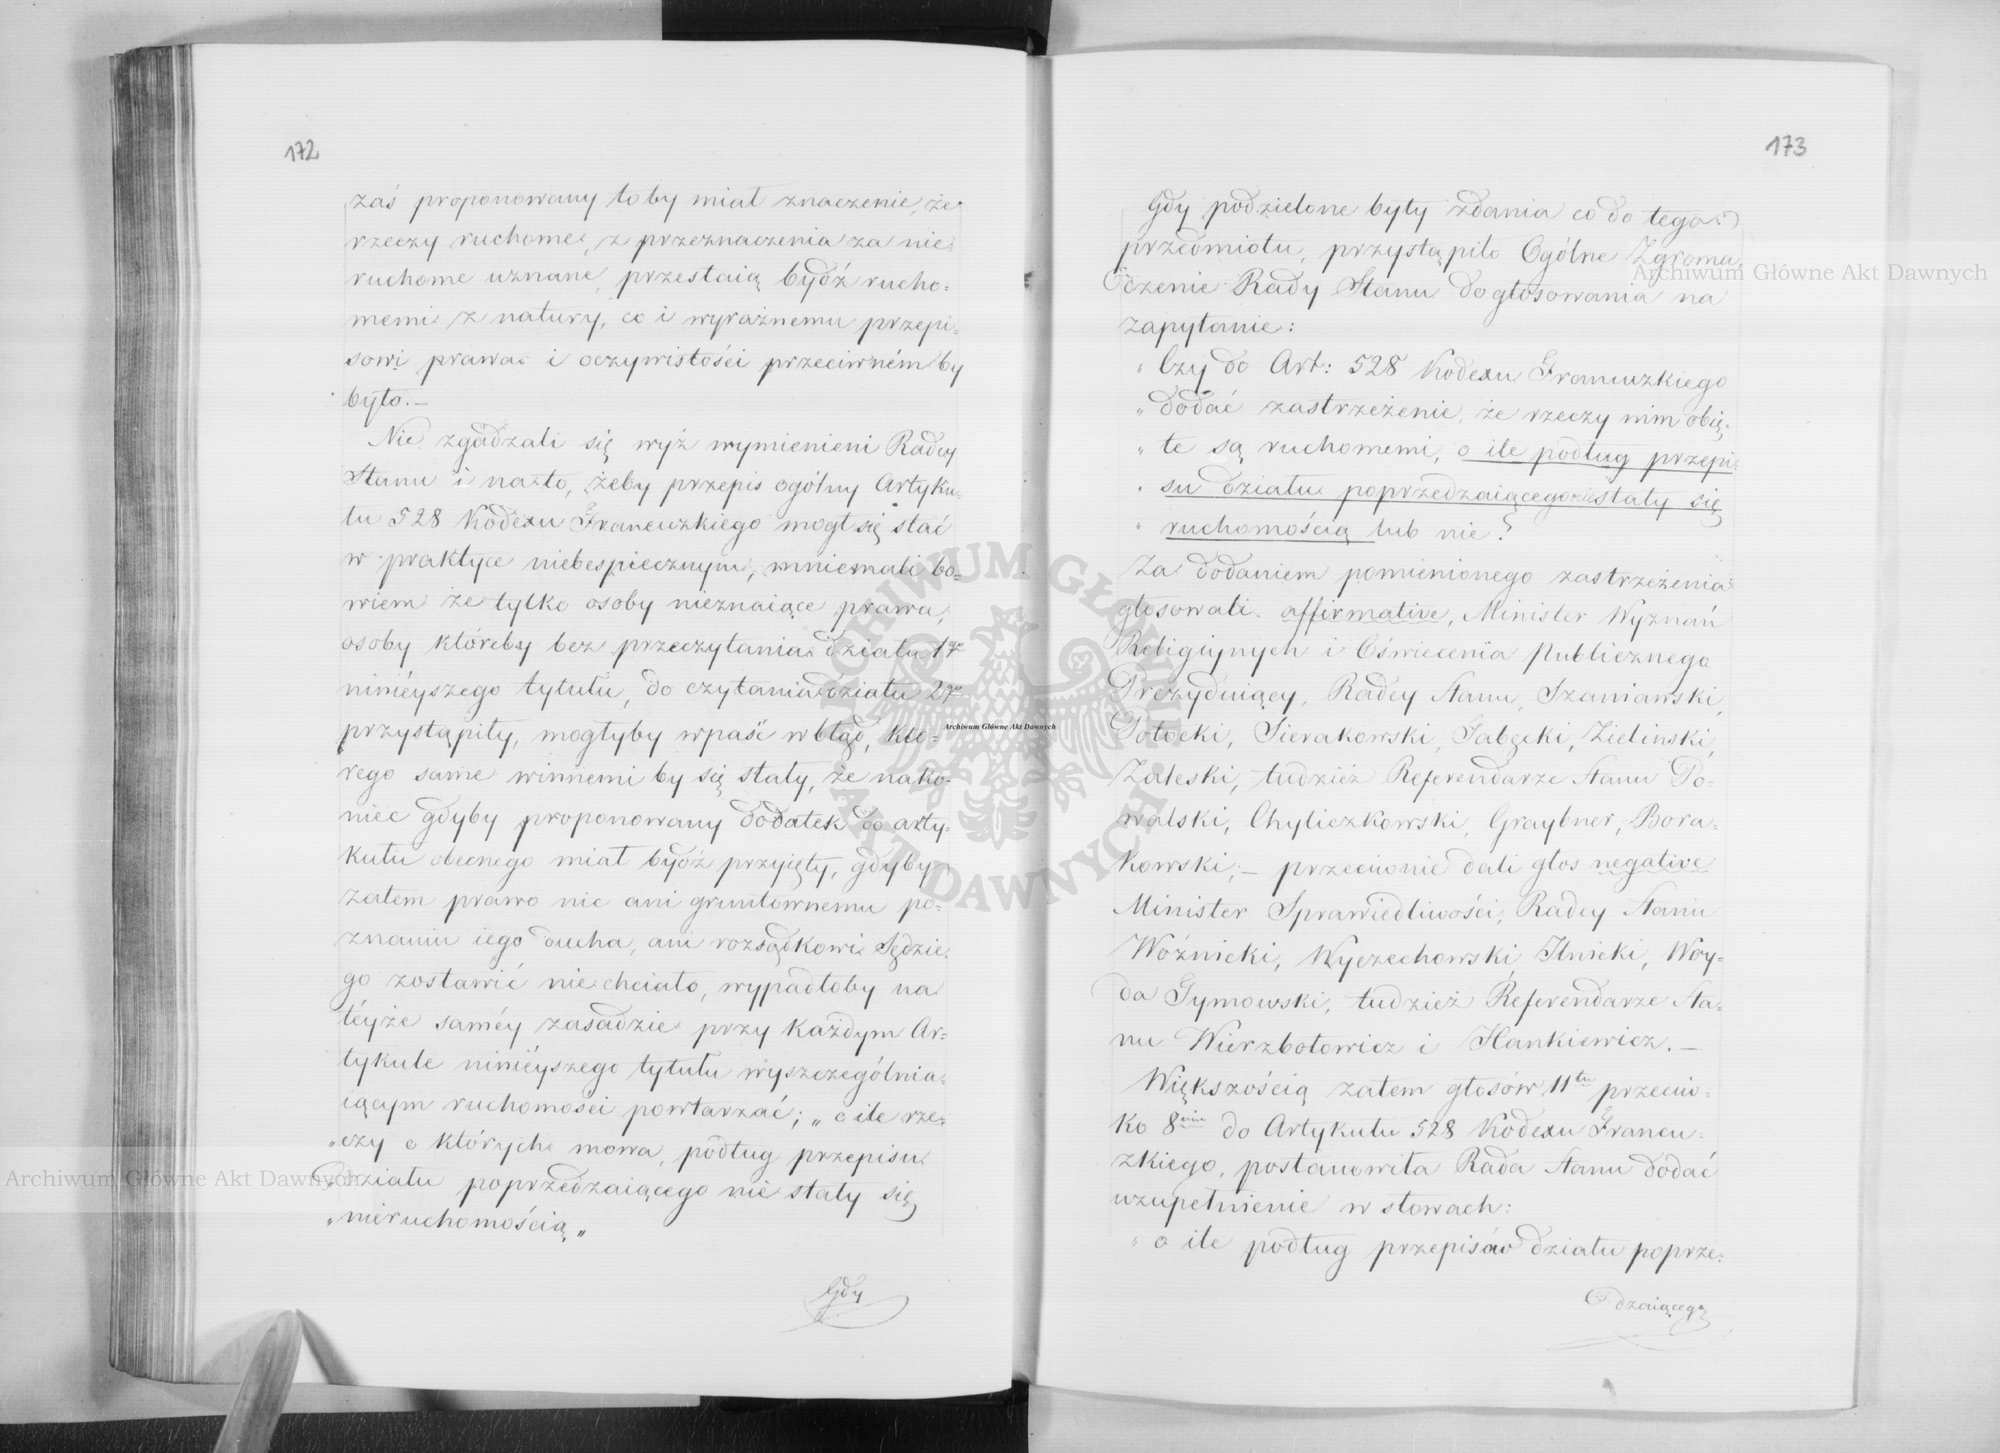 172
zaś proponowany toby miał znaczenie, że
rzeczy ruchome, z przeznaczenia za nie=
ruchome uznane, przestaią bydź rucho=
memi z natury, co i wyraźnemu przepi=
sowi prawa i oczywistości przeciwném by
było.—
Nie zgadzali się wyż wymienieni Radcy
Stanu i na to, żeby przepis ogólny Artyku=
łu 528 Kodexu Francuzkiego mogł się stać
w praktyce niebespiecznym, mniemali bo=
wiem że tylko osoby nieznaiące prawa,
osoby któreby bez przeczytania działu 1go
ninieyszego tytułu, do czytania działu 2go
przystąpiły, mogłyby wpaść w błąd, któ=
rego same winnemi by się stały, że nako=
niec gdyby proponowany dodatek do arty=
kułu obecnego miał bydź przyięty, gdyby
zatem prawo nic ani gruntownemu po=
znaniu iego ducha, ani rozsądkowi Sędzie=
go zostawić nie chciało, wypadłoby na
téyże saméy zasadzie przy każdym Ar=
tykule ninieyszego tytułu wyszczególnia=
iącym ruchomości powtarzać; „o ile rze=
„czy o których mowa, podług przepisu
„Działu poprzedzaiącego nie stały się
„nieruchomością„
Gdy
173
Gdy podzielone były zdania co do tego
przedmiotu, przystąpiło Ogólne Zgroma=
dzenie Rady Stanu do głosowania na
zapytanie:
„Czy do Art: 528 Kodexu Francuzkiego
„dodać zastrzeżenie, że rzeczy nim obię=
„te są ruchomemi, o ile podług przepi=
„su działu poprzedzaiącego niestały się
„ruchomością lub nie?
Za dodaniem pomienionego zastrzeżenia
głosowali affirmative, Minister Wyznań
Religiynych i Oświecenia Publicznego
Prezyduiący, Radcy Stanu, Szaniawski,
Potocki, Sierakowski, Tabęcki, Zieliński,
Zaleski, tudzież Referendarze Stanu Po=
walski, Chyliczkowski, Graybner, Bora=
kowski;— przeciwnie dali głos negative
Minister Sprawiedliwości, Radcy Stanu
Woźnicki, Wyczechowski, Ilnicki, Woy=
da Tymowski, tudzież Referendarze Sta=
nu Wierzbołowicz i Hankiewicz.—
Większością zatem głosów 11tu przeciw=
ko 8miu do Artykułu 528 Kodexu Francu=
zkiego, postanowiła Rada Stanu dodać
uzupełnienie w słowach:
„o ile podług przepisów działu poprze=
dzaiącego
Archiwum Główne Akt Dawnych
Archiwum Główne Akt Dawnych
Archiwum Główne Akt Dawnych
ARCHIWUM GŁÓWNE AKT DAWNYCH